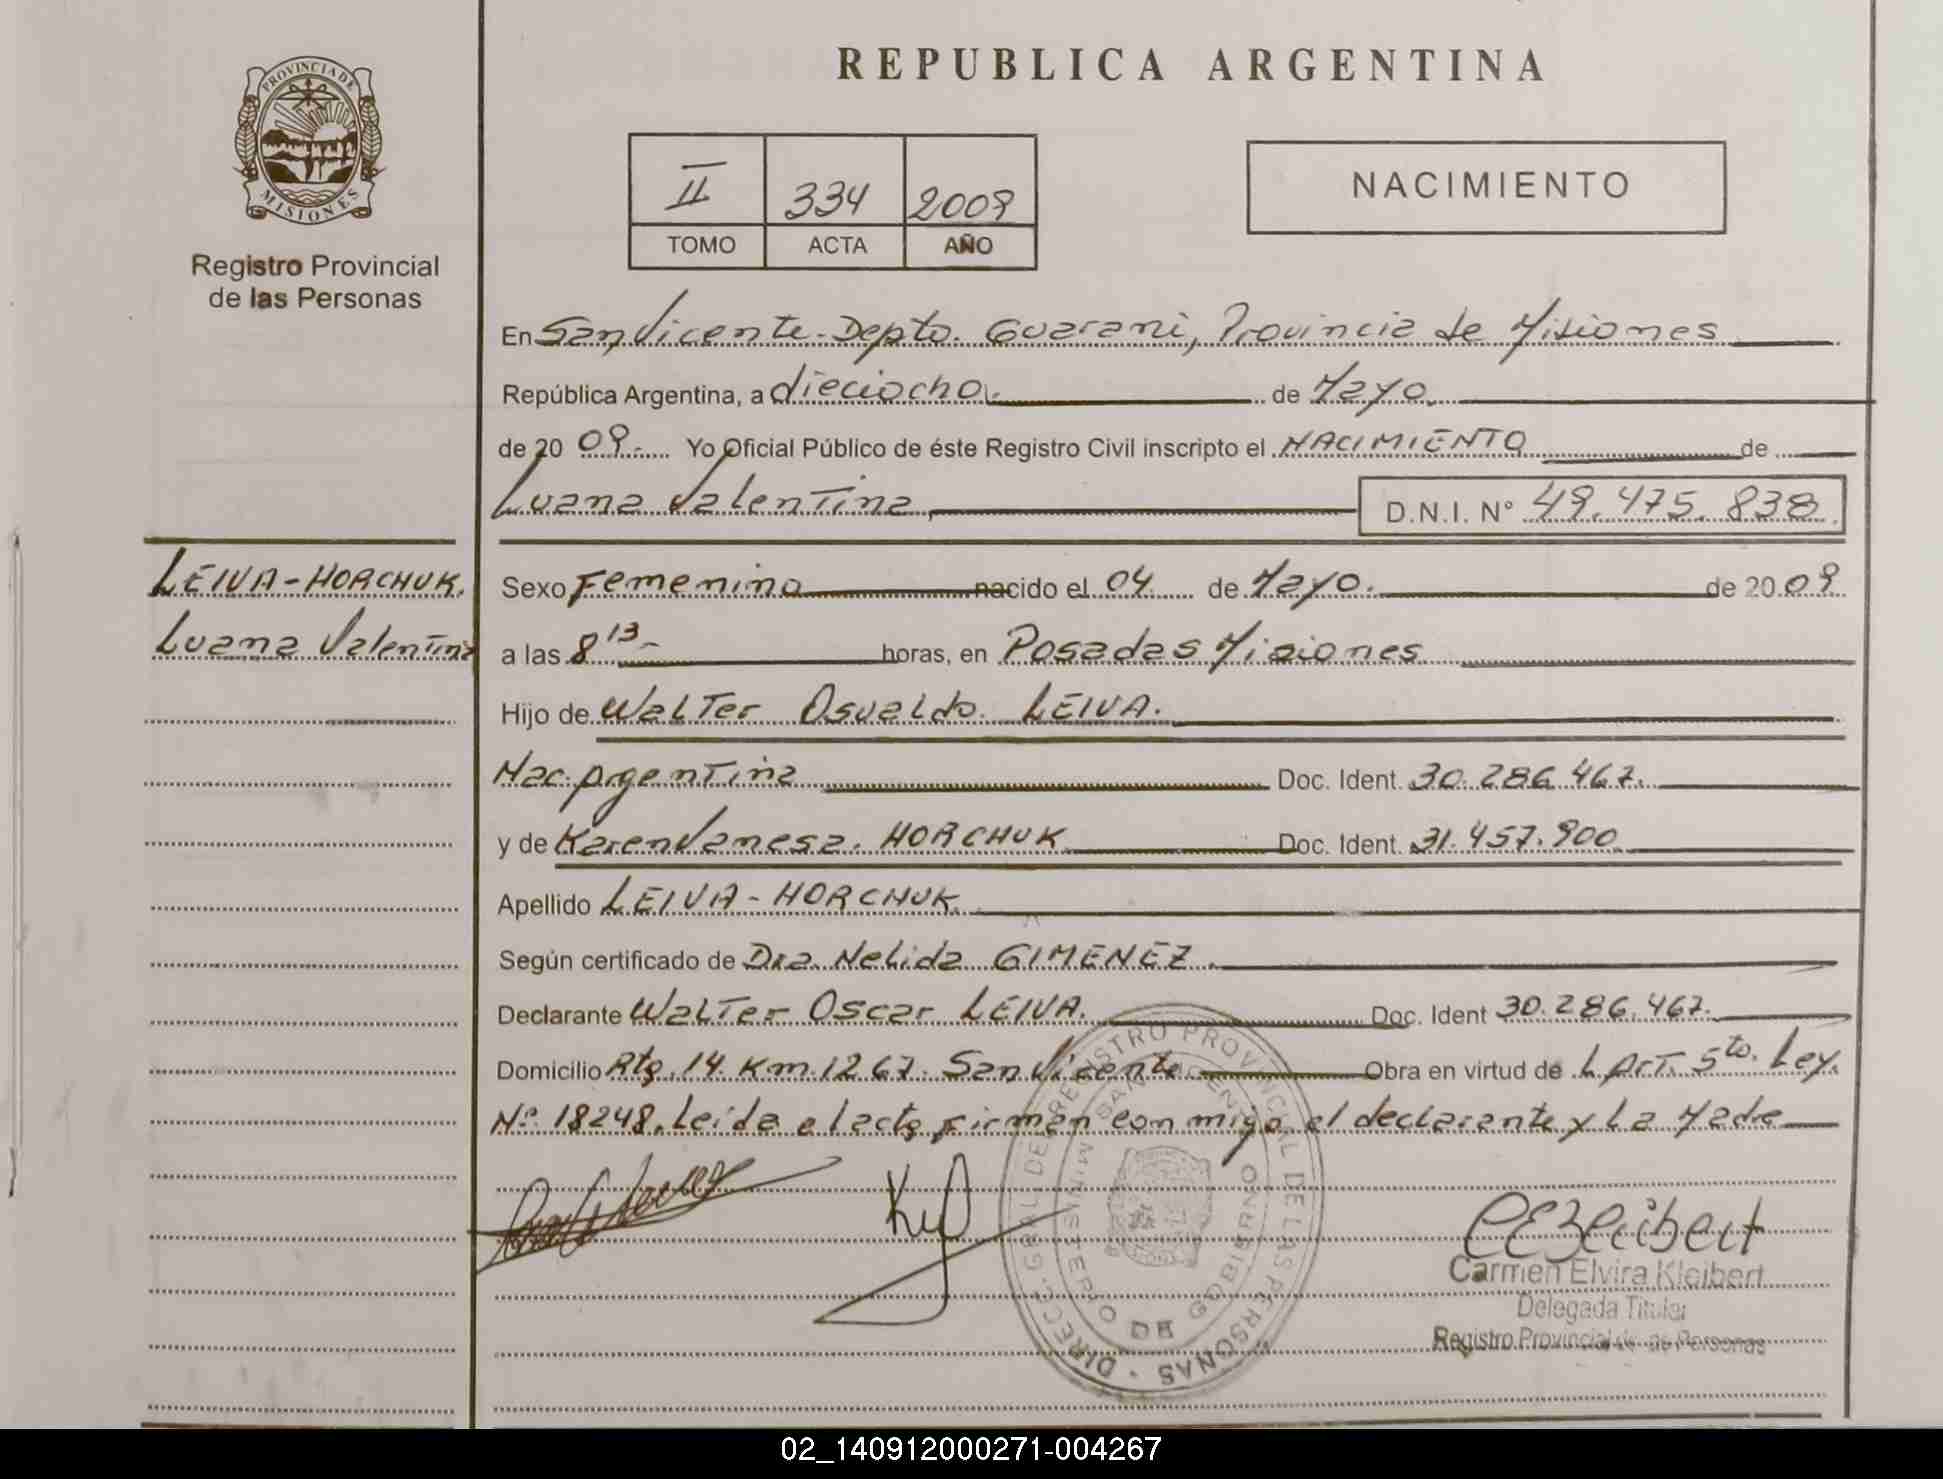 PROVINCIA DE
MISIONES
Registro Provincial
de las Personas
LEIVA-HORCHUK.
Luana Valentina
REPUBLICA ARGENTINA
II 334 2009
TOMO ACTA AÑO
NACIMIENTO
En San Vicente Depto. Guarani, Provincia de Misiones
República Argentina, a dieciocho. de Mayo.
de 20 09.- Yo Oficial Público de éste Registro Civil inscripto el NACIMIENTO de
Luana Valentina D.N.I. N° 49.475.838.
Sexo Femenino nacido el 04 de Mayo. de 20 09
a las 8 13- horas, en Posadas Misiones
Hijo de Walter Osvaldo. LEIVA.
Nac. Argentina Doc. Ident. 30.286.467.
y de Karen Vanesa. HORCHUK Doc. Ident. 31.457.900
Apellido LEIVA-HORCHUK.
Según certificado de Dra. Nelida GIMENEZ.
Declarante Walter Oscar LEIVA. Doc. Ident 30.286.467.
Domicilio Rta. 14. Km. 1267. San Vicente. Obra en virtud de L Art. 5to. Ley.
N°. 18248. Leida el acta firman con migo el declarante y La Madre
DIRECC. GRAL. DE REGISTRO PROVINCIAL DE LAS PERSONAS
MINISTERIO DE GOBIERNO
Carmen Elvira Kleibert
Delegada Titular
Registro Provincial de Personas
02_140912000271-004267